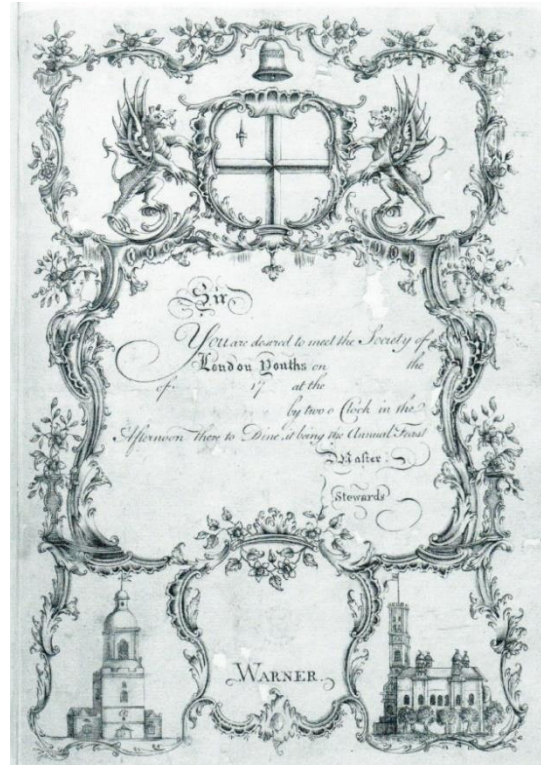 Sir
You are desired to meet the Society of
London Youths on the
of 17 at the
by two o Clock in the
Afternoon there to Dine it being the Annual Feast
Master
Stewards
WARNER